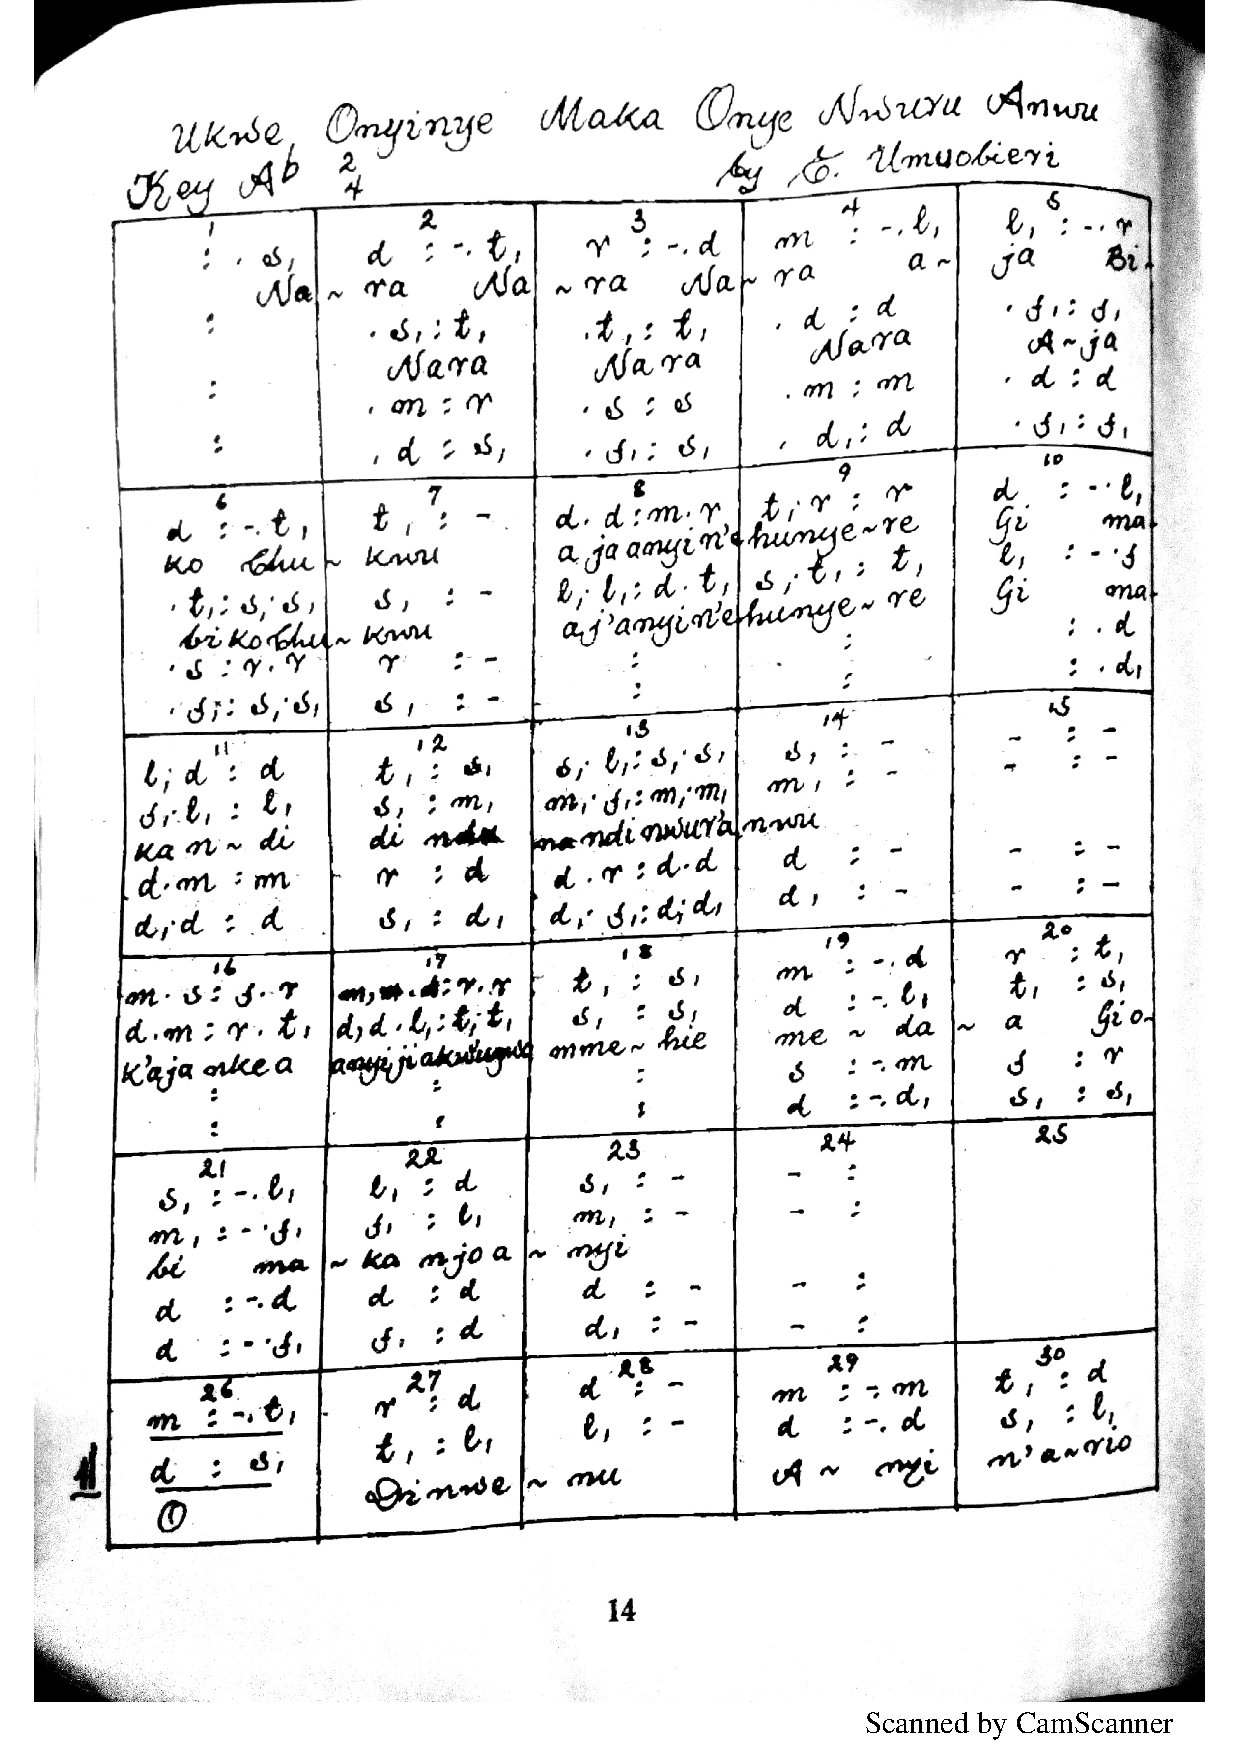 Ukwe Onyinye Maka Onye Nwuru Anwu
Key Ab 2/4 by E. Umuobieri
1 2 3 4 5
: . s, d : -. t, r : -. d m : -. l, l, : -. r
Na ~ ra Na ~ ra Na ~ ra a ~ ja Bi-
: . s, : t, . t, : t, . d : d . f, : f,
Nara Nara Nara A ~ ja
: . m : r . s : s . m : m . d : d
: . d : s, . f, : s, . d, : d . f, : f,
6 7 8 9 10
d : -. t, t, : - d. d : m. r t, r : r d : -. l,
ko Chu ~ kwu a ja anyi n'e hunye ~ re Gi ma-
. t, : s, . s, s, : - l, . l, : d. t, s, . t, : t, l, : -. f
biko Chu ~ kwu a j'anyi n'e hunye ~ re Gi ma-
. s : r. r r : - : : : . d
. f, : s, . s, s, : - : : : . d,
11 12 13 14 15
l, . d : d t, : s, s, . l, : s, . s, s, : - - : -
f, . l, : l, s, : m, m, . f, : m, . m, m, : - - : -
ka n ~ di di ndu na ndi nwur'a nwu
d. m : m r : d d. r : d. d d : - - : -
d, . d : d s, : d, d, . f, : d, . d, d, : - - : -
16 17 18 19 20
m. s : f. r m, m. d : r. r t, : s, m : -. d r : t,
d. m : r. t, d, d. l, : t, . t, s, : s, d : -. l, t, : s,
k'aja nke a anyi ji akwugwa mme ~ hie me ~ da ~ a Gi o-
: : : s : -. m f : r
: : : d : -. d, s, : s,
21 22 23 24 25
s, : -. l, l, : d s, : - - :
m, : -. f, f, : l, m, : - - :
bi ma ~ ka njo a ~ nyi
d : -. d d : d d : - - :
d : -. f, f, : d d, : - - :
26 27 28 29 30
m : -. t, r : d d : - m : -. m t, : d
d : s, t, : l, l, : - d : -. d s, : l,
① Di nwe ~ nu A ~ nyi n'a ~ rio
14
Scanned by CamScanner